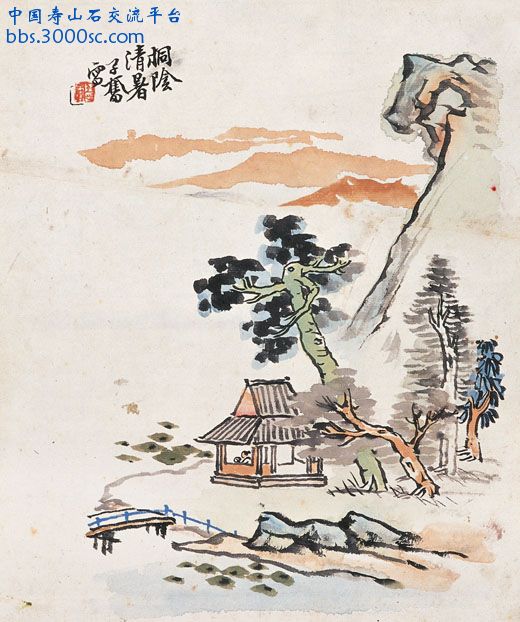 中国寿山石交流平台
bbs.3000sc.com
桐陰
清暑
子奮
寫